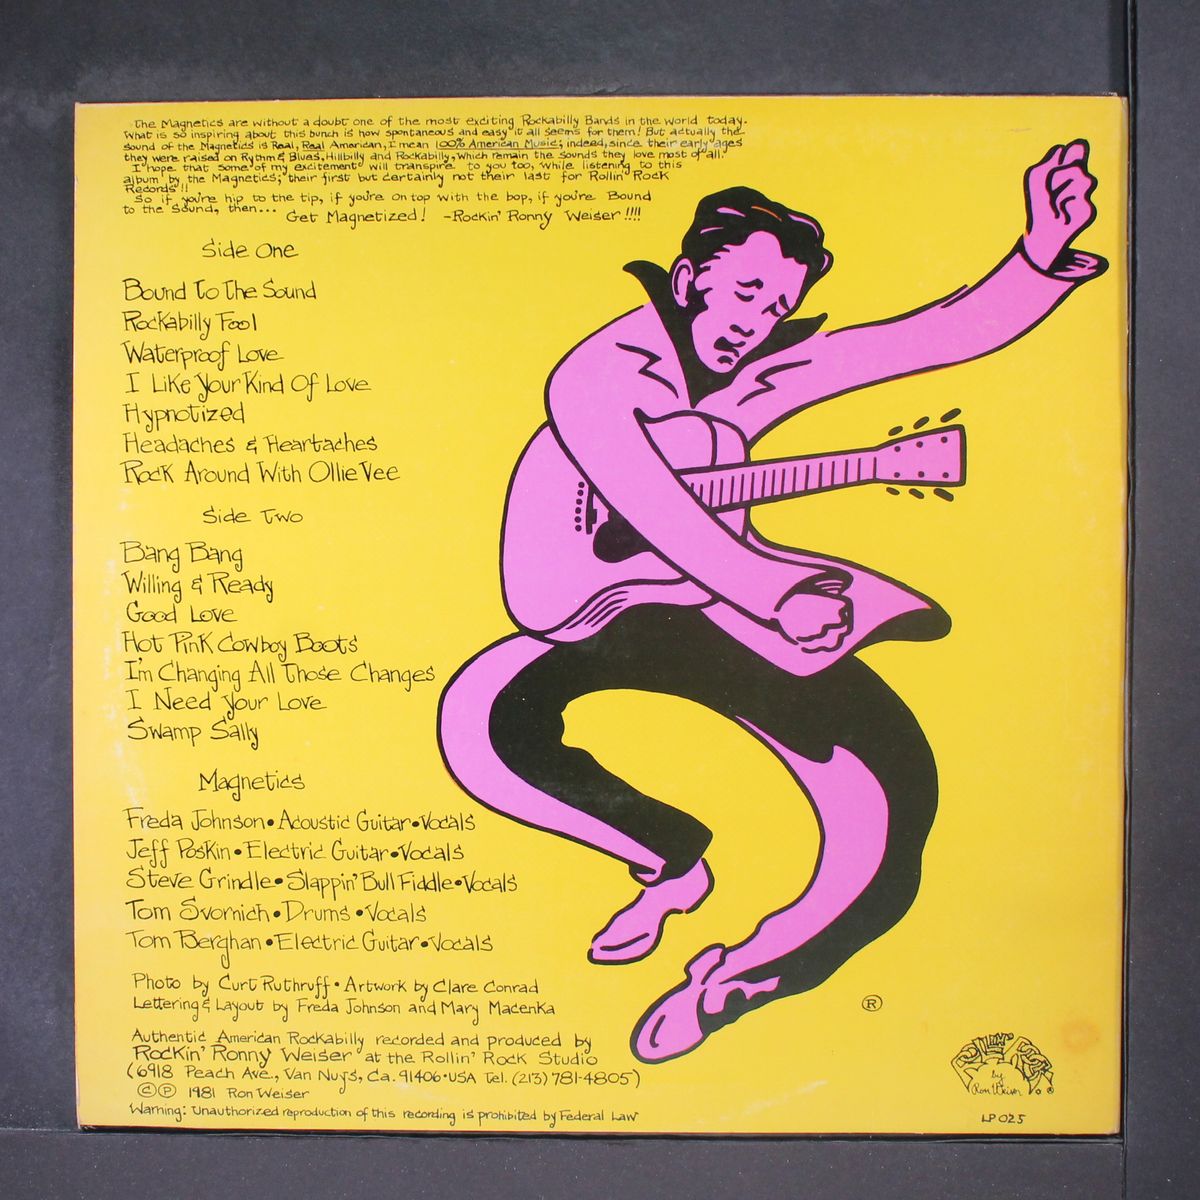 The Magnetics are without a doubt one of the most exciting Rockabilly Bands in the world today.
What is so inspiring about this bunch is how spontaneous and easy it all seems for them! But actually the
sound of the Magnetics is Real, Real American, I mean 100% American Music; indeed, since their early ages
they were raised on Rythm & Blues, Hillbilly and Rockabilly, which remain the sounds they love most of all.
I hope that some of my excitement will transpire to you too, while listening to this
album by the Magnetics; their first but certainly not their last for Rollin' Rock
Records!!
So if you're hip to the tip, if you're on top with the bop, if you're Bound
to the Sound, then... Get Magnetized! -Rockin' Ronny Weiser!!!!
Side One
Bound To The Sound
Rockabilly Fool
Waterproof Love
I Like Your Kind Of Love
Hypnotized
Headaches & Heartaches
Rock Around With Ollie Vee
Side Two
Bang Bang
Willing & Ready
Good Love
Hot Pink Cowboy Boots
I'm Changing All Those Changes
I Need Your Love
Swamp Sally
Magnetics
Freda Johnson • Acoustic Guitar • Vocals
Jeff Poskin • Electric Guitar • Vocals
Steve Grindle • Slappin' Bull Fiddle • Vocals
Tom Svornich • Drums • Vocals
Tom Berghan • Electric Guitar • Vocals
Photo by Curt Ruthruff • Artwork by Clare Conrad
Lettering & Layout by Freda Johnson and Mary Macenka
Authentic American Rockabilly recorded and produced by
Rockin' Ronny Weiser at the Rollin' Rock Studio
(6918 Peach Ave., Van Nuys, Ca. 91406 • USA Tel. (213) 781-4805)
© ℗ 1981 Ron Weiser
Warning: Unauthorized reproduction of this recording is prohibited by Federal Law
®
Rollin' Rock
by
Ron Weiser
®
LP 025